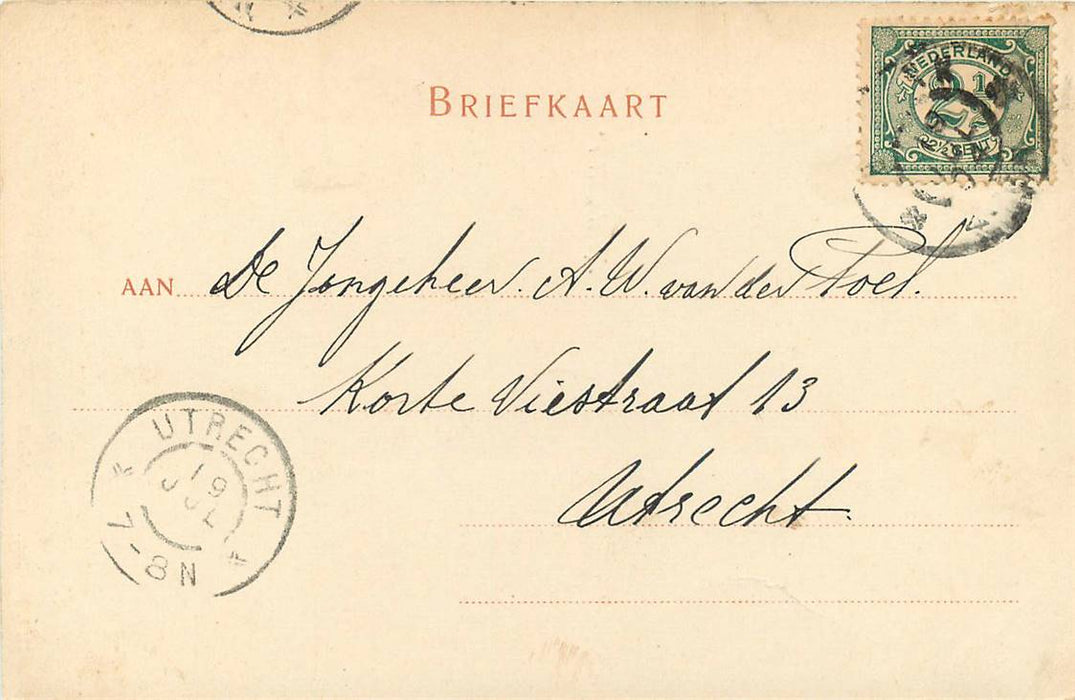 BRIEFKAART
NEDERLAND
2½
2½ CENT
AAN De Jongeheer. A. W. van der Poel.
Korte Viestraat 13
Utrecht.
UTRECHT
19
JUL
7-8N